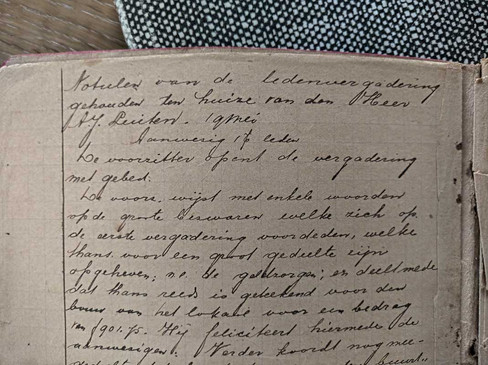 Notulen van de ledenvergadering
gehouden ten huize van den Heer
A.J. Luiten. 19 Mei
Aanwezig 17 leden
De voorzitter opent de vergadering
met gebed.
De voorz. wijst met enkele woorden
op de groote bezwaren welke zich op
de eerste vergadering voordeden, welke
thans voor een groot gedeelte zijn
opgeheven; n.l. de geldzorgen; en deelt mede
dat thans reeds is geteekend voor den
bouw van het lokaal voor een bedrag
van f 901.75. Hij feliciteert hiermede de
aanwezigen. Verder wordt nog mee-